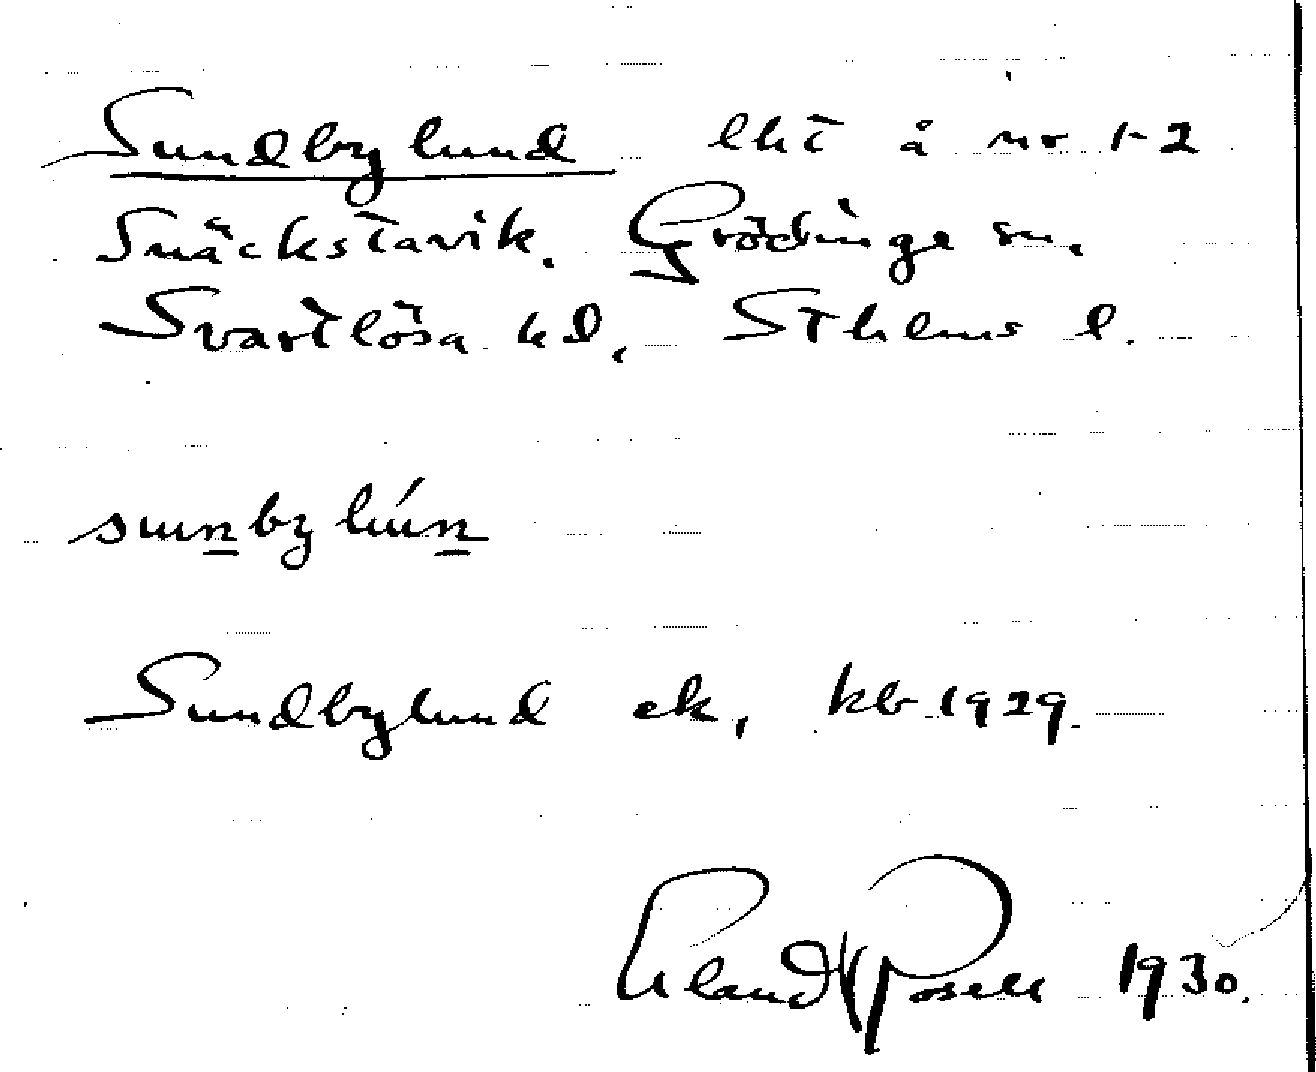 Sundbylund lht å nr 1-2
Snäckstavik. Grödinge sn.
Svartlösa hd, Sthlms l.
sunbylún
Sundbylund ek, kb 1929.
Erland Rosell 1930.